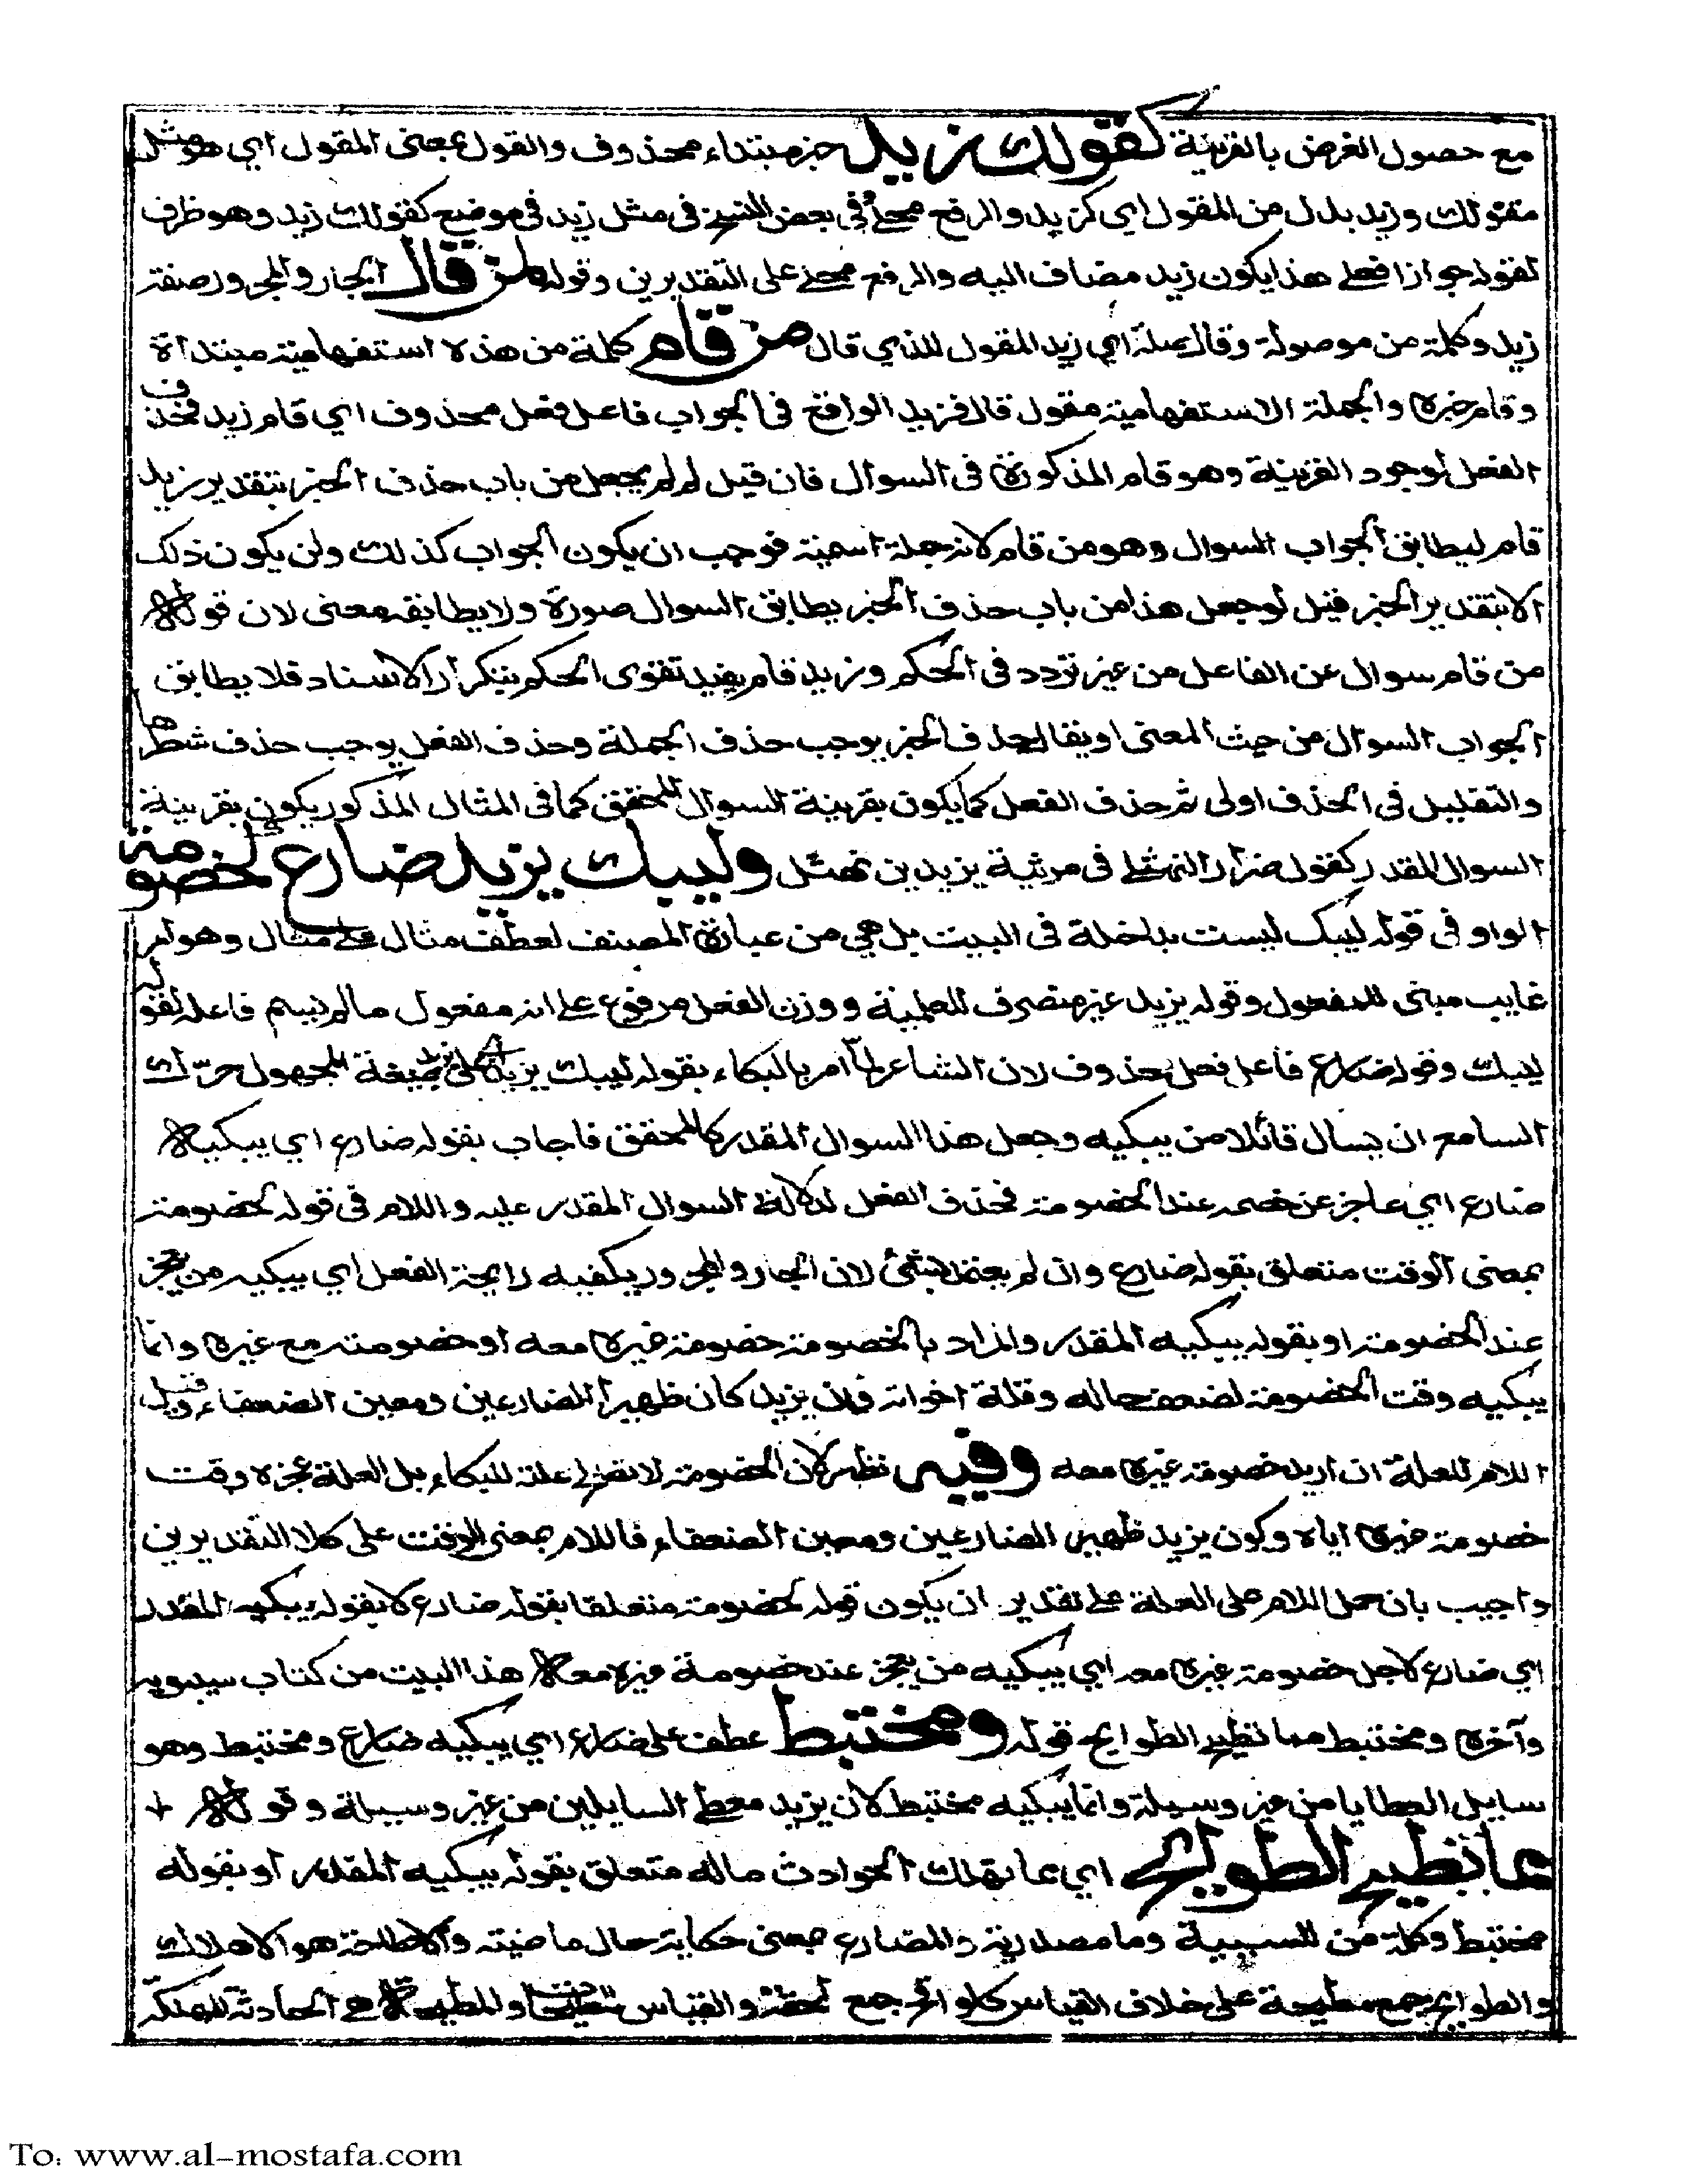 مع حصول الغرض بالقرينة كقولك زيد خبر مبتداء محذوف والقول بمعنى المقول اي هو مثل
مقولك وزيد بدل من المقول اي كزيد والرفع محكي في بعض النسخ في مثل زيد في موضع كقولك زيد وهو ظرف
لقوله جوازا فعلى هذا يكون زيد مضاف اليه والرفع محكي على التقديرين وقوله لمن قال الجار والمجرور صفة
زيد وكلمة من موصولة وقال صلة اي زيد المقول للذي قال من قام كلمة من هذه استفهامية مبتدأة
وقام خبره والجملة الاستفهامية مقول قال فزيد الواقع في الجواب فاعل فعل محذوف اي قام زيد فحذف
الفعل لوجود القرينة وهو قام المذكورة في السوال فان قيل لم لم يجعل من باب حذف الخبر بتقدير زيد
قام ليطابق الجواب السوال وهو من قام لانه جملة اسمية فوجب ان يكون الجواب كذلك ولن يكون ذلك
الا بتقدير الخبر قيل لو جعل هذا من باب حذف الخبر يطابق السوال صورة ولا يطابقه معنى لان قوله
من قام سوال عن الفاعل من غير تردد في الحكم وزيد قام يفيد تقوى الحكم بتكرار الاسناد فلا يطابق
الجواب السوال من حيث المعنى او يقال حذف الخبر يوجب حذف الجملة وحذف الفعل يوجب حذف شطرها
والتقليل في الحذف اولى ثم حذف الفعل كما يكون بقرينة السوال المحقق كما في المثال المذكور يكون بقرينة
السوال المقدر كقول ضرار النهشلي في مرثية يزيد بن نهشل وليبك يزيد ضارع لخصومة
الواو في قوله ليبك ليست بداخلة في البيت بل هي من عبارة المصنف لعطف مثال على مثال وهو امر
غايب مبني للمفعول وقوله يزيد غير منصرف للعلمية ووزن الفعل مرفوع على انه مفعول ما لم يسم فاعله لقوله
ليبك وقوله ضارع فاعل فعل محذوف لان الشاعر لما امر بالبكاء بقوله ليبك يزيد على صيغة المجهول حرك
السامع ان يسال قائلا من يبكيه وجعل هذا السوال المقدر كالمحقق فاجاب بقوله ضارع اي يبكيه
ضارع اي عاجز عن خصمه عند الخصومة فحذف الفعل لدلالة السوال المقدر عليه واللام في قوله لخصومة
بمعنى الوقت متعلق بقوله ضارع وان لم يعتمد بشئ لان الجار والمجرور يكفيه رايحة الفعل اي يبكيه من يعجز
عند الخصومة او بقوله يبكيه المقدر والمراد بالخصومة خصومة غيره معه او خصومته مع غيره وانما
يبكيه وقت الخصومة لضعف حاله وقلة اخوانه فان يزيد كان ظهيرا للضارعين ومعين الضعفاء وقيل
اللام للعلة ان اريد خصومة غيره معه وفيه نظر لان الخصومة لا تقع علة للبكاء بل العلة عجزه وقت
خصومة غيره اياه وكون يزيد ظهير الضارعين ومعين الضعفاء فاللام بمعنى الوقت على كلا التقديرين
واجيب بان حمل اللام على العلة على تقدير ان يكون قوله لخصومة متعلقا بقوله ضارع لا بقوله يبكيه المقدر
اي ضارع لاجل خصومة غيره معه اي يبكيه من يعجز عند خصومة غيره معه هذا البيت من كتاب سيبويه
وآخره ومختبط مما تطيح الطوايح قوله ومختبط عطف على ضارع اي يبكيه ضارع ومختبط وهو
سايل العطايا من غير وسيلة وانما يبكيه مختبط لان يزيد معطي السايلين من غير وسيلة وقوله
مما تطيح الطوايح اي مما تهلك الحوادث ماله متعلق بقوله يبكيه المقدر او بقوله
مختبط وكلمة من للسببية وما مصدرية والمضارع بمعنى حكاية حال ماضية والاطاحة هو الاهلاك
والطوايح جمع مطيحة على خلاف القياس كلواقح جمع ملقحة والقياس والمطيحة هي الحادثة المهلكة
To: www.al-mostafa.com